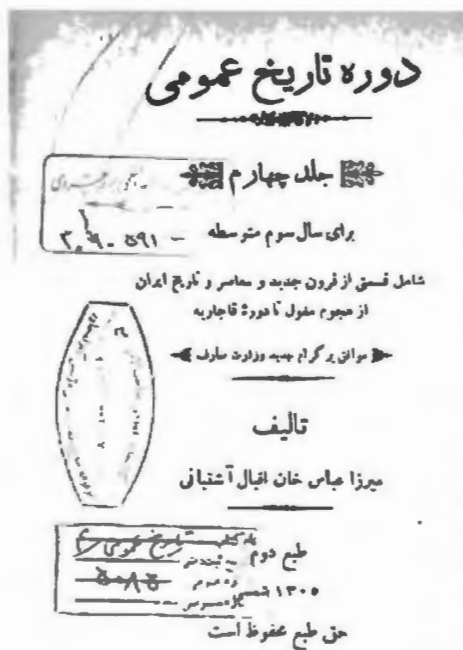 دوره تاریخ عمومی
جلد چهارم
۳۰۹۰۵۹۱ -
برای سال سوم متوسطه
شامل قسمتی از قرون جدید و معاصر و تاریخ ایران
از هجوم مغول تا دورهٔ قاجاریه
موافق پرگرام جدید وزارت معارف
تالیف
میرزا عباس خان اقبال آشتیانی
تاریخ عمومی
طبع دوم
۵۰۸۵
۱۳۰۵ شمسی
حق طبع محفوظ است